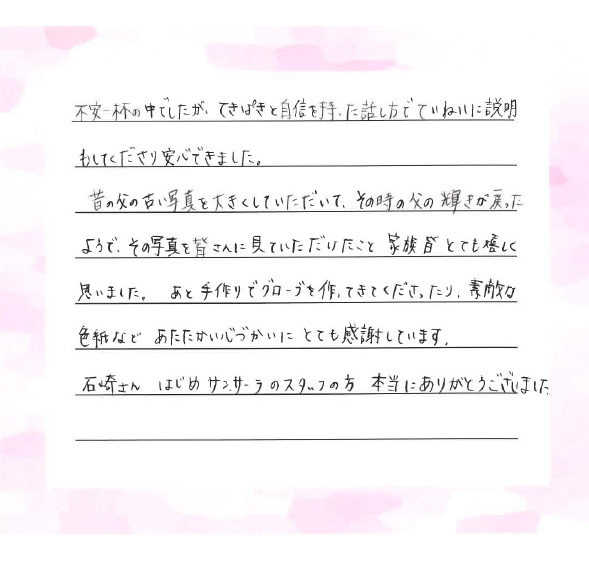 不安一杯の中でしたが、てきぱきと自信を持った話し方でていねいに説明
もしてくださり安心できました。
昔の父の古い写真を大きくしていただいて、その時の父の輝きが戻った
ようで、その写真を皆さんに見ていただけたこと 家族皆とても嬉しく
思いました。 あと手作りでグローブを作ってきてくださったり、素敵な
色紙など あたたかい心づかいに とても感謝しています。
石崎さん はじめ サンサーラのスタッフの方 本当にありがとうございました